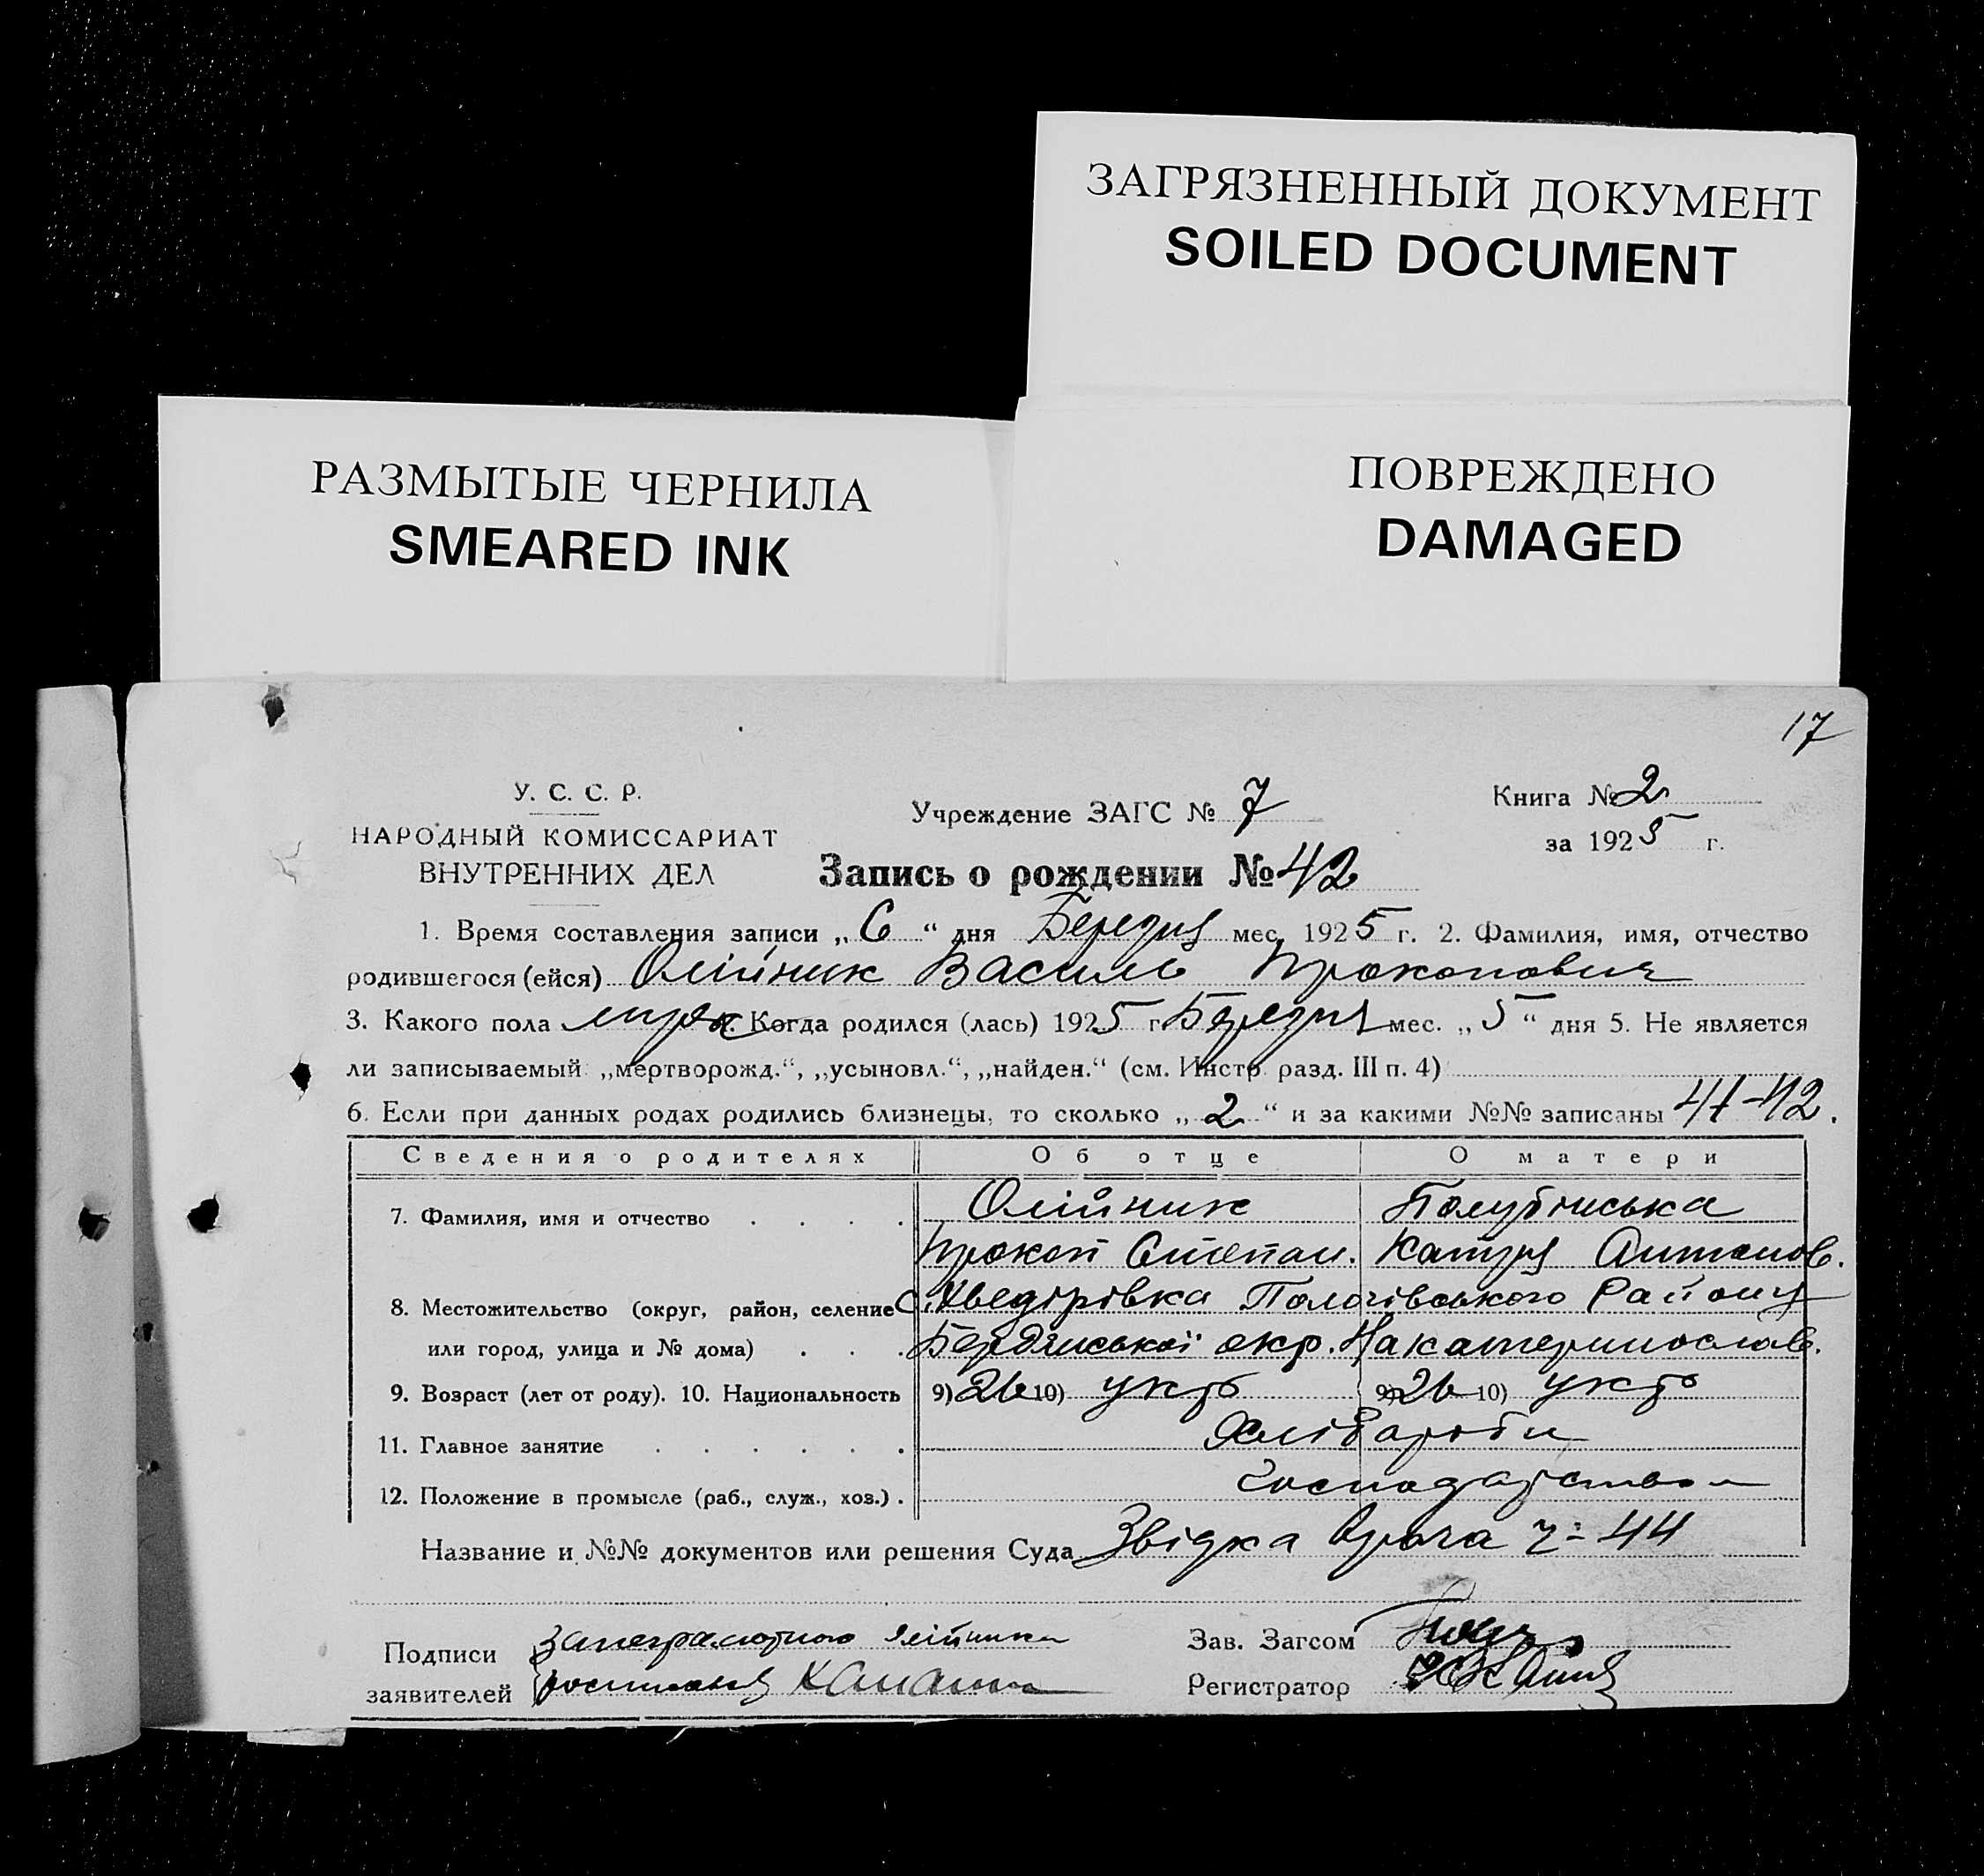 ЗАГРЯЗНЕННЫЙ ДОКУМЕНТ
SOILED DOCUMENT
РАЗМЫТЫЕ ЧЕРНИЛА
SMEARED INK
ПОВРЕЖДЕНО
DAMAGED
17
У. С. С. Р.
НАРОДНЫЙ КОМИССАРИАТ
ВНУТРЕННИХ ДЕЛ
Учреждение ЗАГС № 7
Книга № 2
за 1925 г.
Запись о рождении № 42
1. Время составления записи „6“ дня Березня мес. 1925 г. 2. Фамилия, имя, отчество
родившегося (ейся) Олійник Василь Прокопович
3. Какого пола Когда родился (лась) 1925 г. Березня мес. „5“ дня 5. Не является
ли записываемый: „мертворожд.“, „усыновл.“, „найден.“ (см. Инстр. разд. III п. 4)
6. Если при данных родах родились близнецы, то сколько „2“ и за какими №№ записаны 41-42.
Сведения о родителях Об отце О матери
7. Фамилия, имя и отчество Олійник
Прокоп Степан. Катря Антонов.
8. Местожительство (округ, район, селение с. Хведірівка Пологівського Району
или город, улица и № дома) Бердянської окр. Накатеринослав.
9. Возраст (лет от роду). 10. Национальность 9) 26 10) укр 9) 26 10) укр
11. Главное занятие Хлібороби
12. Положение в промысле (раб., служ., хоз.)
Название и №№ документов или решения Суда Звідка Врача 44
Подписи
заявителей
Зав. Загсом
Регистратор